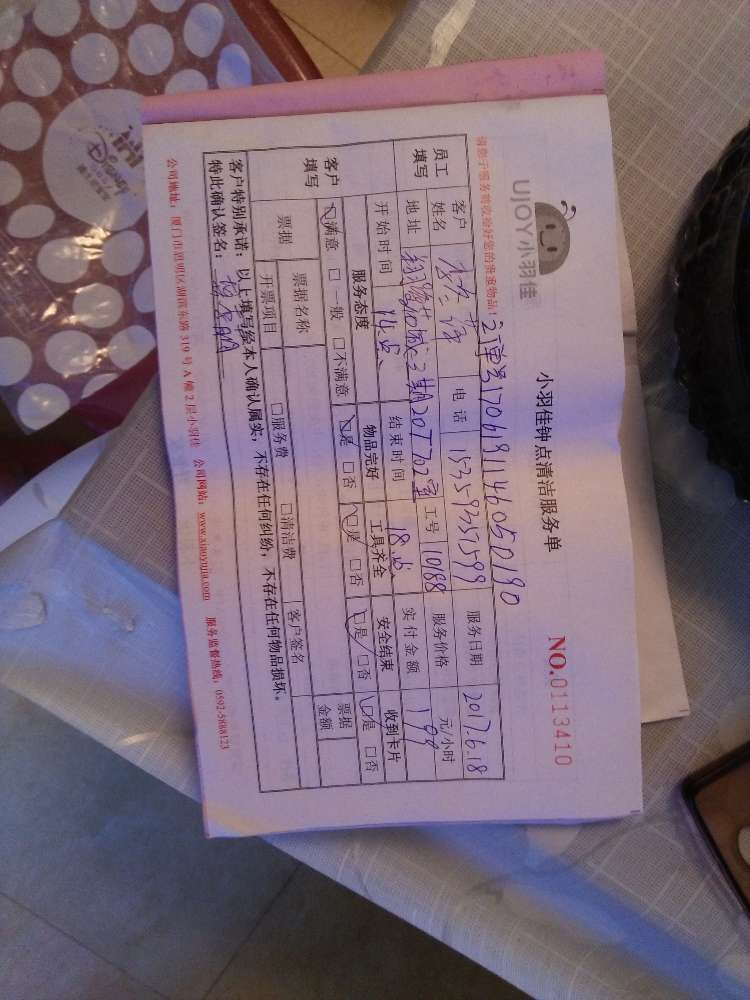 UJOY小羽佳
小羽佳钟点清洁服务单
NO.0113410
请您于服务前收捡好您的贵重物品!
订单号1706181146050190
员工填写
客户姓名
电话
服务日期 2017.6.18
地址 2期207702室
工号 10188
服务价格 元/小时
开始时间 14点
结束时间 18点
实付金额 199
客户填写
服务态度 物品完好 工具齐全 安全结束 收到卡片
□满意 □一般 □不满意 □是 □否 □是 □否 □是 □否 □是 □否
票据 票据名称 客户签名 票据金额
开票项目 □服务费 □清洁费
客户特别承诺:以上填写经本人确认属实,不存在任何纠纷,不存在任何物品损坏。
特此确认签名:
公司地址:厦门市思明区湖滨东路319号A幢2层小羽佳 公司网站:www.xiaoyujia.com 服务监督热线:0592-5188123